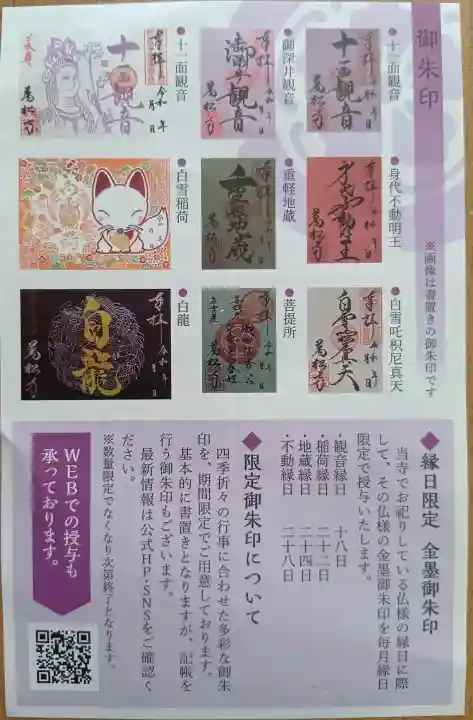 御朱印
※画像は書置きの御朱印です
●十一面観音
●御深井観音
●十一面観音
●身代不動明王
●重軽地蔵
●白雪稲荷
●白雪吒枳尼真天
●菩提所
●白龍
十一面観音
奉拝
令和 年 月 日
萬松寺
御深井観音
奉拝
令和 年 月 日
萬松寺
十一面観音
奉拝
令和 年 月 日
萬松寺
白龍
奉拝
令和 年 月 日
萬松寺
◆縁日限定 金墨御朱印
当寺でお祀りしている仏様の縁日に際
して、その仏様の金墨御朱印を毎月縁日
限定で授与いたします。
・観音縁日 十八日
・稲荷縁日 二十二日
・地蔵縁日 二十四日
・不動縁日 二十八日
◆限定御朱印について
四季折々の行事に合わせた多彩な御朱
印を、期間限定でご用意しております。
基本的に書置きとなりますが、記帳を
行う御朱印もございます。
最新情報は公式HP・SNSをご確認く
ださい。
※数量限定でなくなり次第終了となります。
WEBでの授与も
承っております。